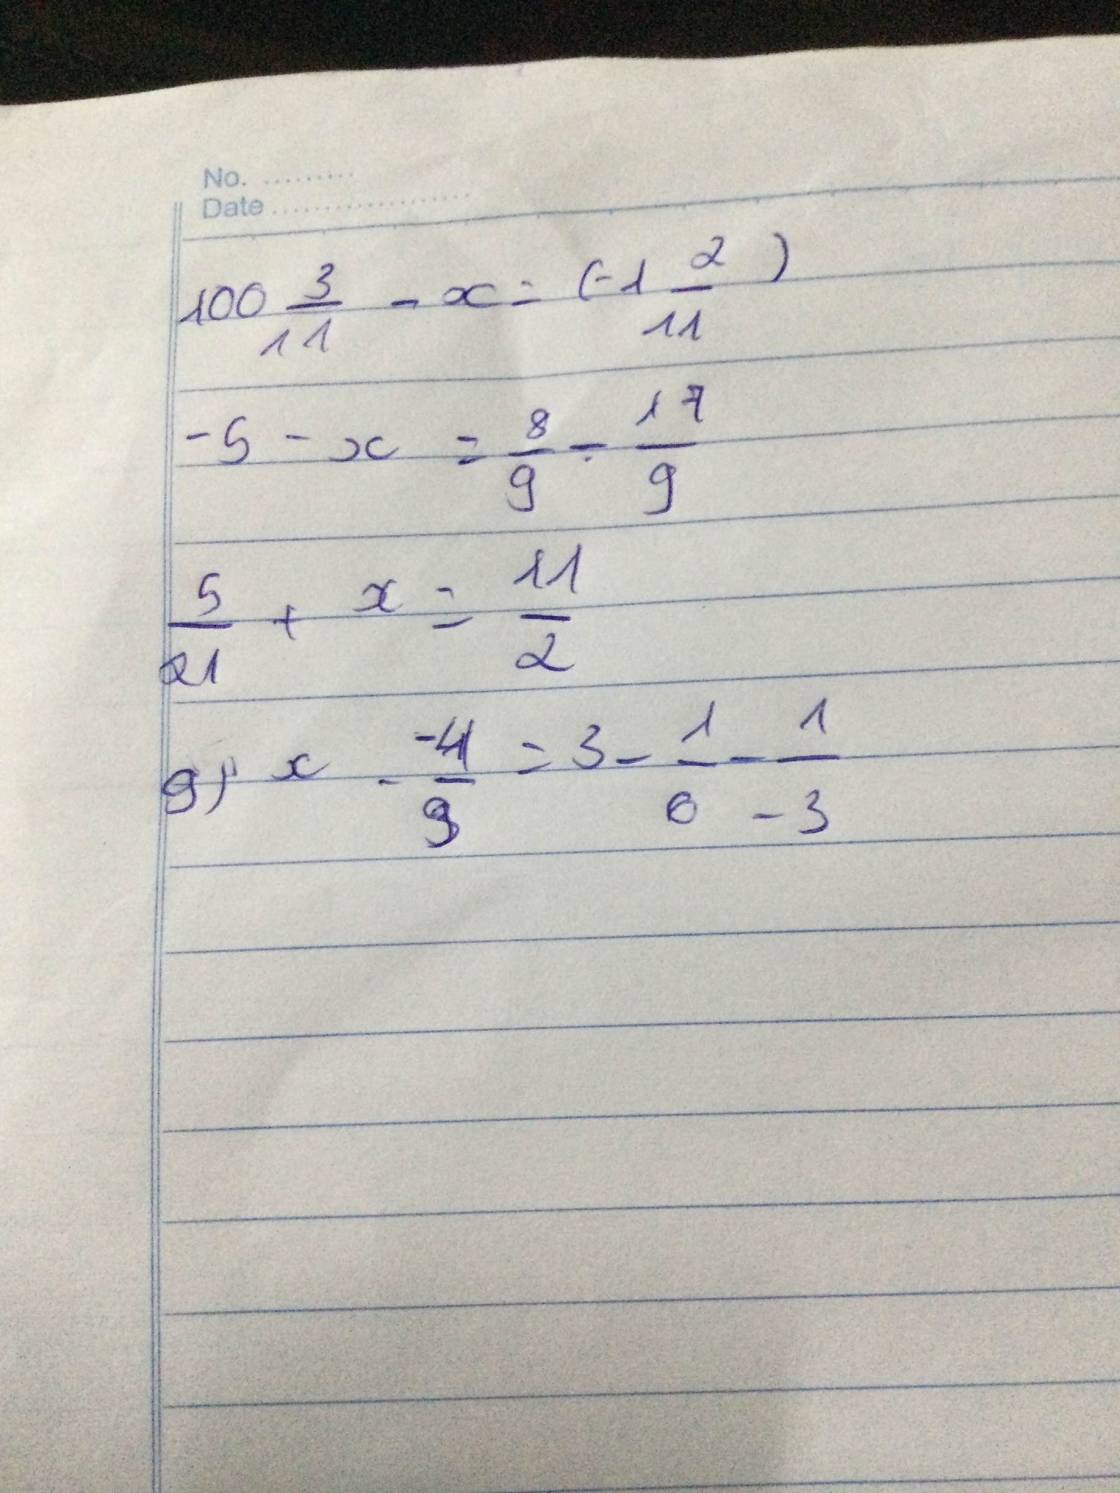 No. .........
Date ...................
100 3/11 - x = (-1 2/11)
-5 - x = 8/9 - 17/9
5/21 + x = 11/2
g) x - -4/9 = 3 - 1/6 - 1/-3